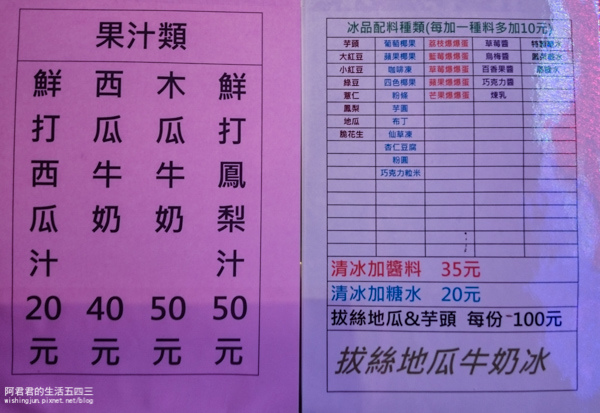 果汁類
鮮打鳳梨汁 50元
木瓜牛奶 50元
西瓜牛奶 40元
鮮打西瓜汁 20元
冰品配料種類(每加一種料多加10元)
芋頭 葡萄椰果 荔枝爆爆蛋 草莓醬
大紅豆 蘋果椰果 藍莓爆爆蛋 烏梅醬
小紅豆 咖啡凍 草莓爆爆蛋 百香果醬
綠豆 四色椰果 蘋果爆爆蛋 巧克力醬
薏仁 粉條 芒果爆爆蛋 煉乳
鳳梨 芋圓
地瓜 布丁
脆花生 仙草凍
杏仁豆腐
粉圓
巧克力粒米
清冰加醬料 35元
清冰加糖水 20元
拔絲地瓜&芋頭 每份-100元
拔絲地瓜牛奶冰
阿君君的生活五四三
wishingjun.pixnet.net/blog